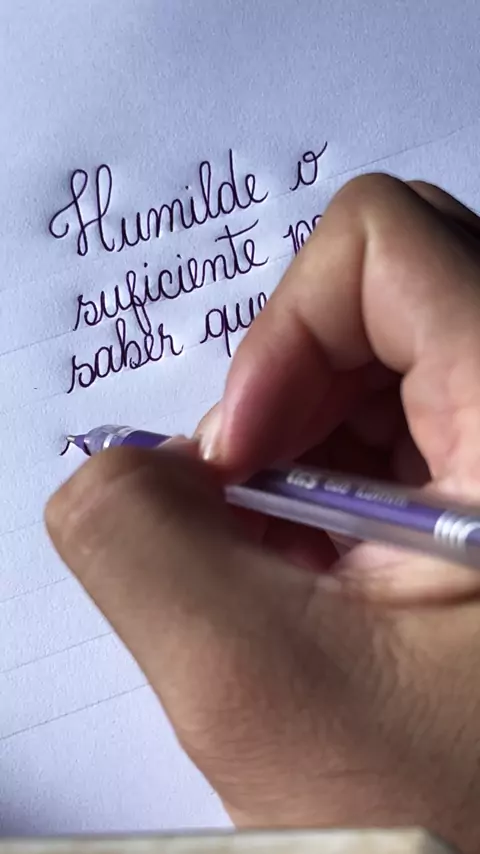 Humilde o
suficiente
saber que